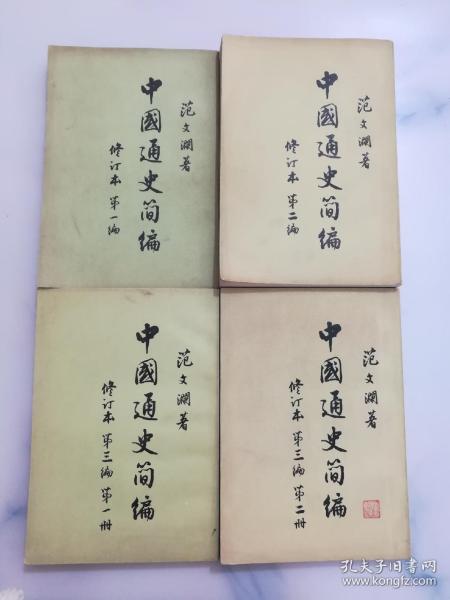 范文瀾著
中國通史简编
修订本 第一编
范文瀾著
中國通史简编
修订本 第二编
范文瀾著
中國通史简编
修订本 第三编 第一册
范文瀾著
中國通史简编
修订本 第三编 第二册
孔夫子旧书网
www.kongfz.com